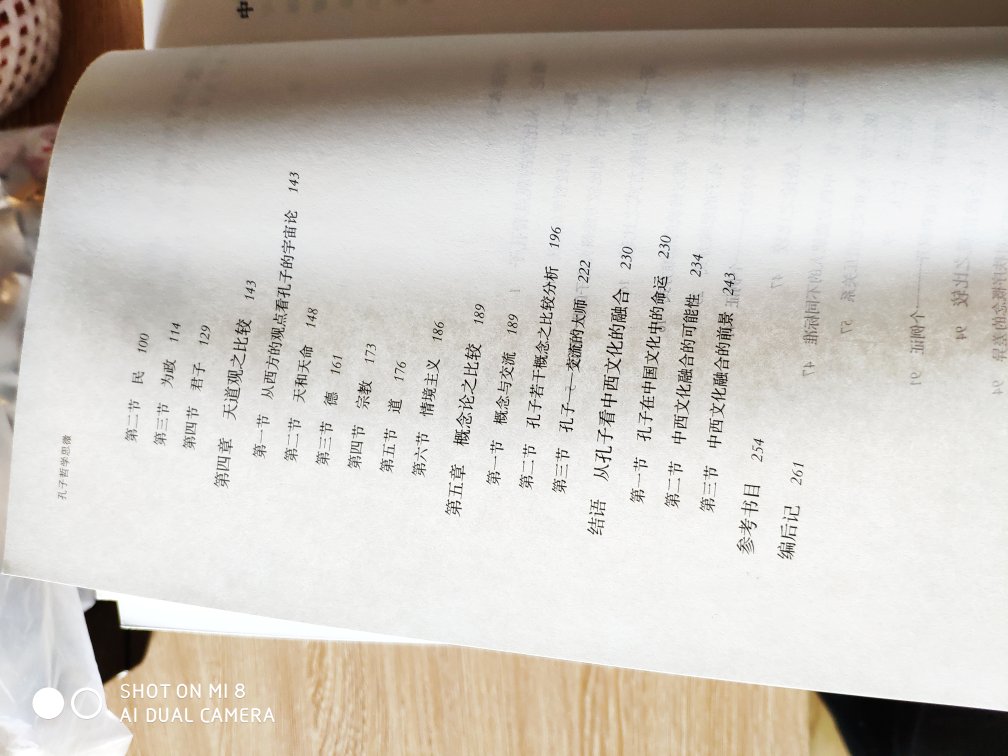 孔子哲学思微
第二节 民 100
第三节 为政 114
第四节 君子 129
第四章 天道观之比较 143
第一节 从西方的观点看孔子的宇宙论 143
第二节 天和天命 148
第三节 德 161
第四节 宗教 173
第五节 道 176
第六节 情境主义 186
第五章 概念论之比较 189
第一节 概念与交流 189
第二节 孔子若干概念之比较分析 196
第三节 孔子——交流的大师 222
结语 从孔子看中西文化的融合 230
第一节 孔子在中国文化中的命运 230
第二节 中西文化融合的可能性 234
第三节 中西文化融合的前景 243
参考书目 254
编后记 261
中
SHOT ON MI 8
AI DUAL CAMERA